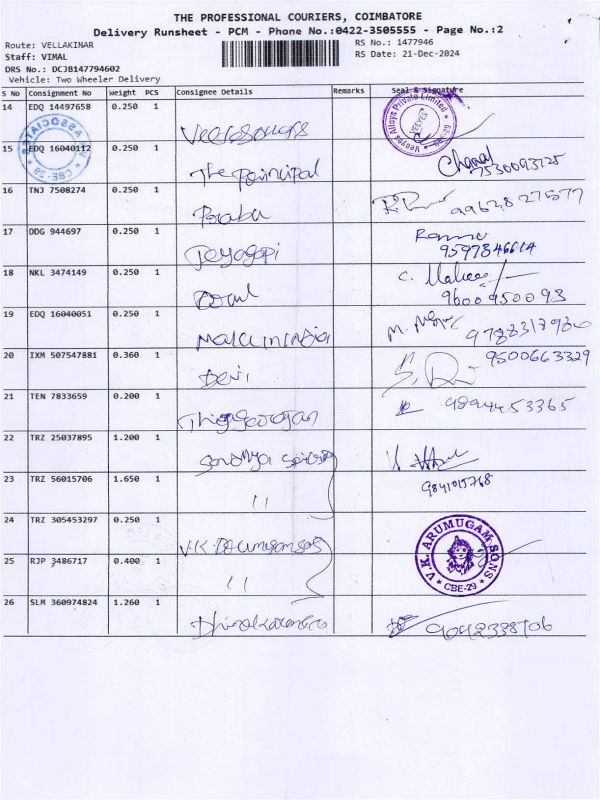 THE PROFESSIONAL COURIERS, COIMBATORE
Delivery Runsheet - PCM - Phone No.:0422-3505555 - Page No.:2
Route: VELLAKINAR
RS No.: 1477946
Staff: VIMAL
RS Date: 21-Dec-2024
DRS No.: DCJB147794602
Vehicle: Two Wheeler Delivery
S No Consignment No Weight PCS Consignee Details Remarks Seal & Signature
14 EDQ 14497658 0.250 1
Veeyes Alloys Private Limited
VEEYES
ASSOCIATES
CBE-29
15 EDQ 16040112 0.250 1 The Principal
7530093725
16 TNJ 7508274 0.250 1 Prabu
9962827577
17 DDG 944697 0.250 1 Jeyagopi
9597846614
18 NKL 3474149 0.250 1
C.
9600950093
19 EDQ 16040051 0.250 1 Make in India
M.
20 IXM 507547881 0.360 1 Devi
9500663329
21 TEN 7833659 0.200 1 Thiyagarajan
9894453365
22 TRZ 25037895 1.200 1
23 TRZ 56015706 1.650 1 "
9841015768
24 TRZ 305453297 0.250 1 V.K. Arumugam Sons
V.K. ARUMUGAM SONS
CBE-29
25 RJP 3486717 0.400 1 "
26 SLM 360974824 1.260 1 Dhinakaran
9042338706